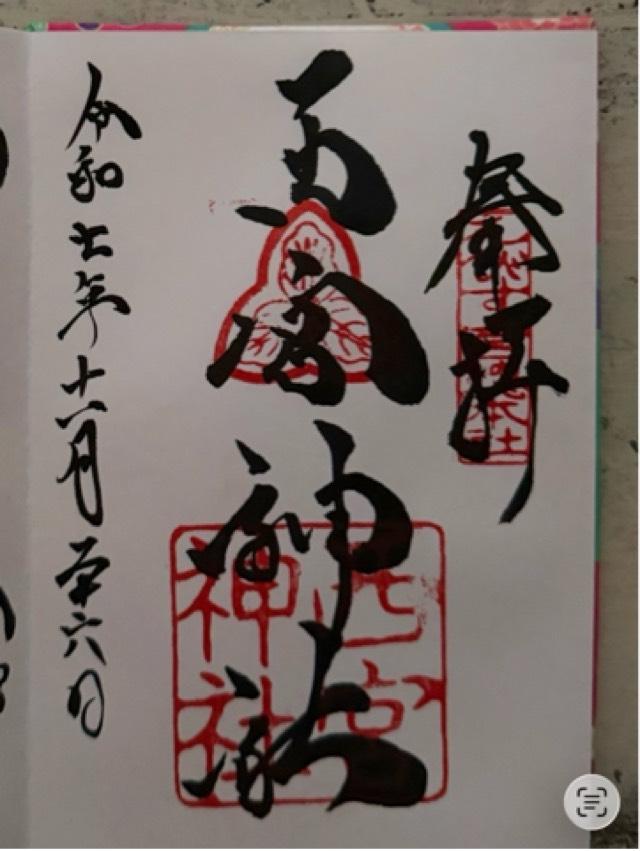 奉拝
西宮神社
西宮
神社
令和七年十一月二十六日